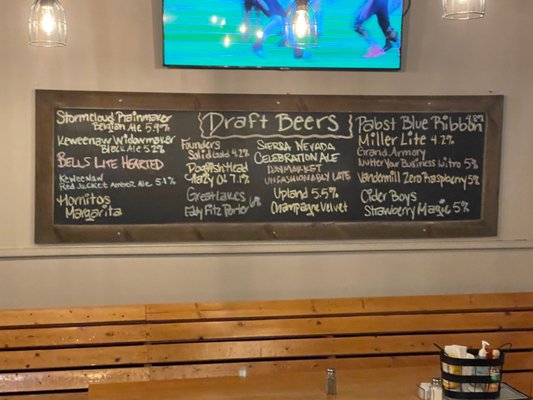 Draft Beers
Stormcloud Rainmaker
Belgian Ale 5.9%
Keweenaw Widowmaker
Black Ale 5.2%
Bells Lite Hearted
Keweenaw
Red Jacket Amber Ale 5.4%
Hornitos
Margarita
Founders
Solid Gold 4.2%
Dogfish Head
Hazy O! 7.1%
Great Lakes
Edmund Fitz Porter 6%
Sierra Nevada
Celebration Ale
Daymarket
Unfashionably Late
Upland 5.5%
Champagne Velvet
Pabst Blue Ribbon
4.8%
Miller Lite 4.2%
Grand Armory
Nutter Your Business Nitro 5%
Vandermill Zero Raspberry 5%
Cider Boys
Strawberry Magic 5%